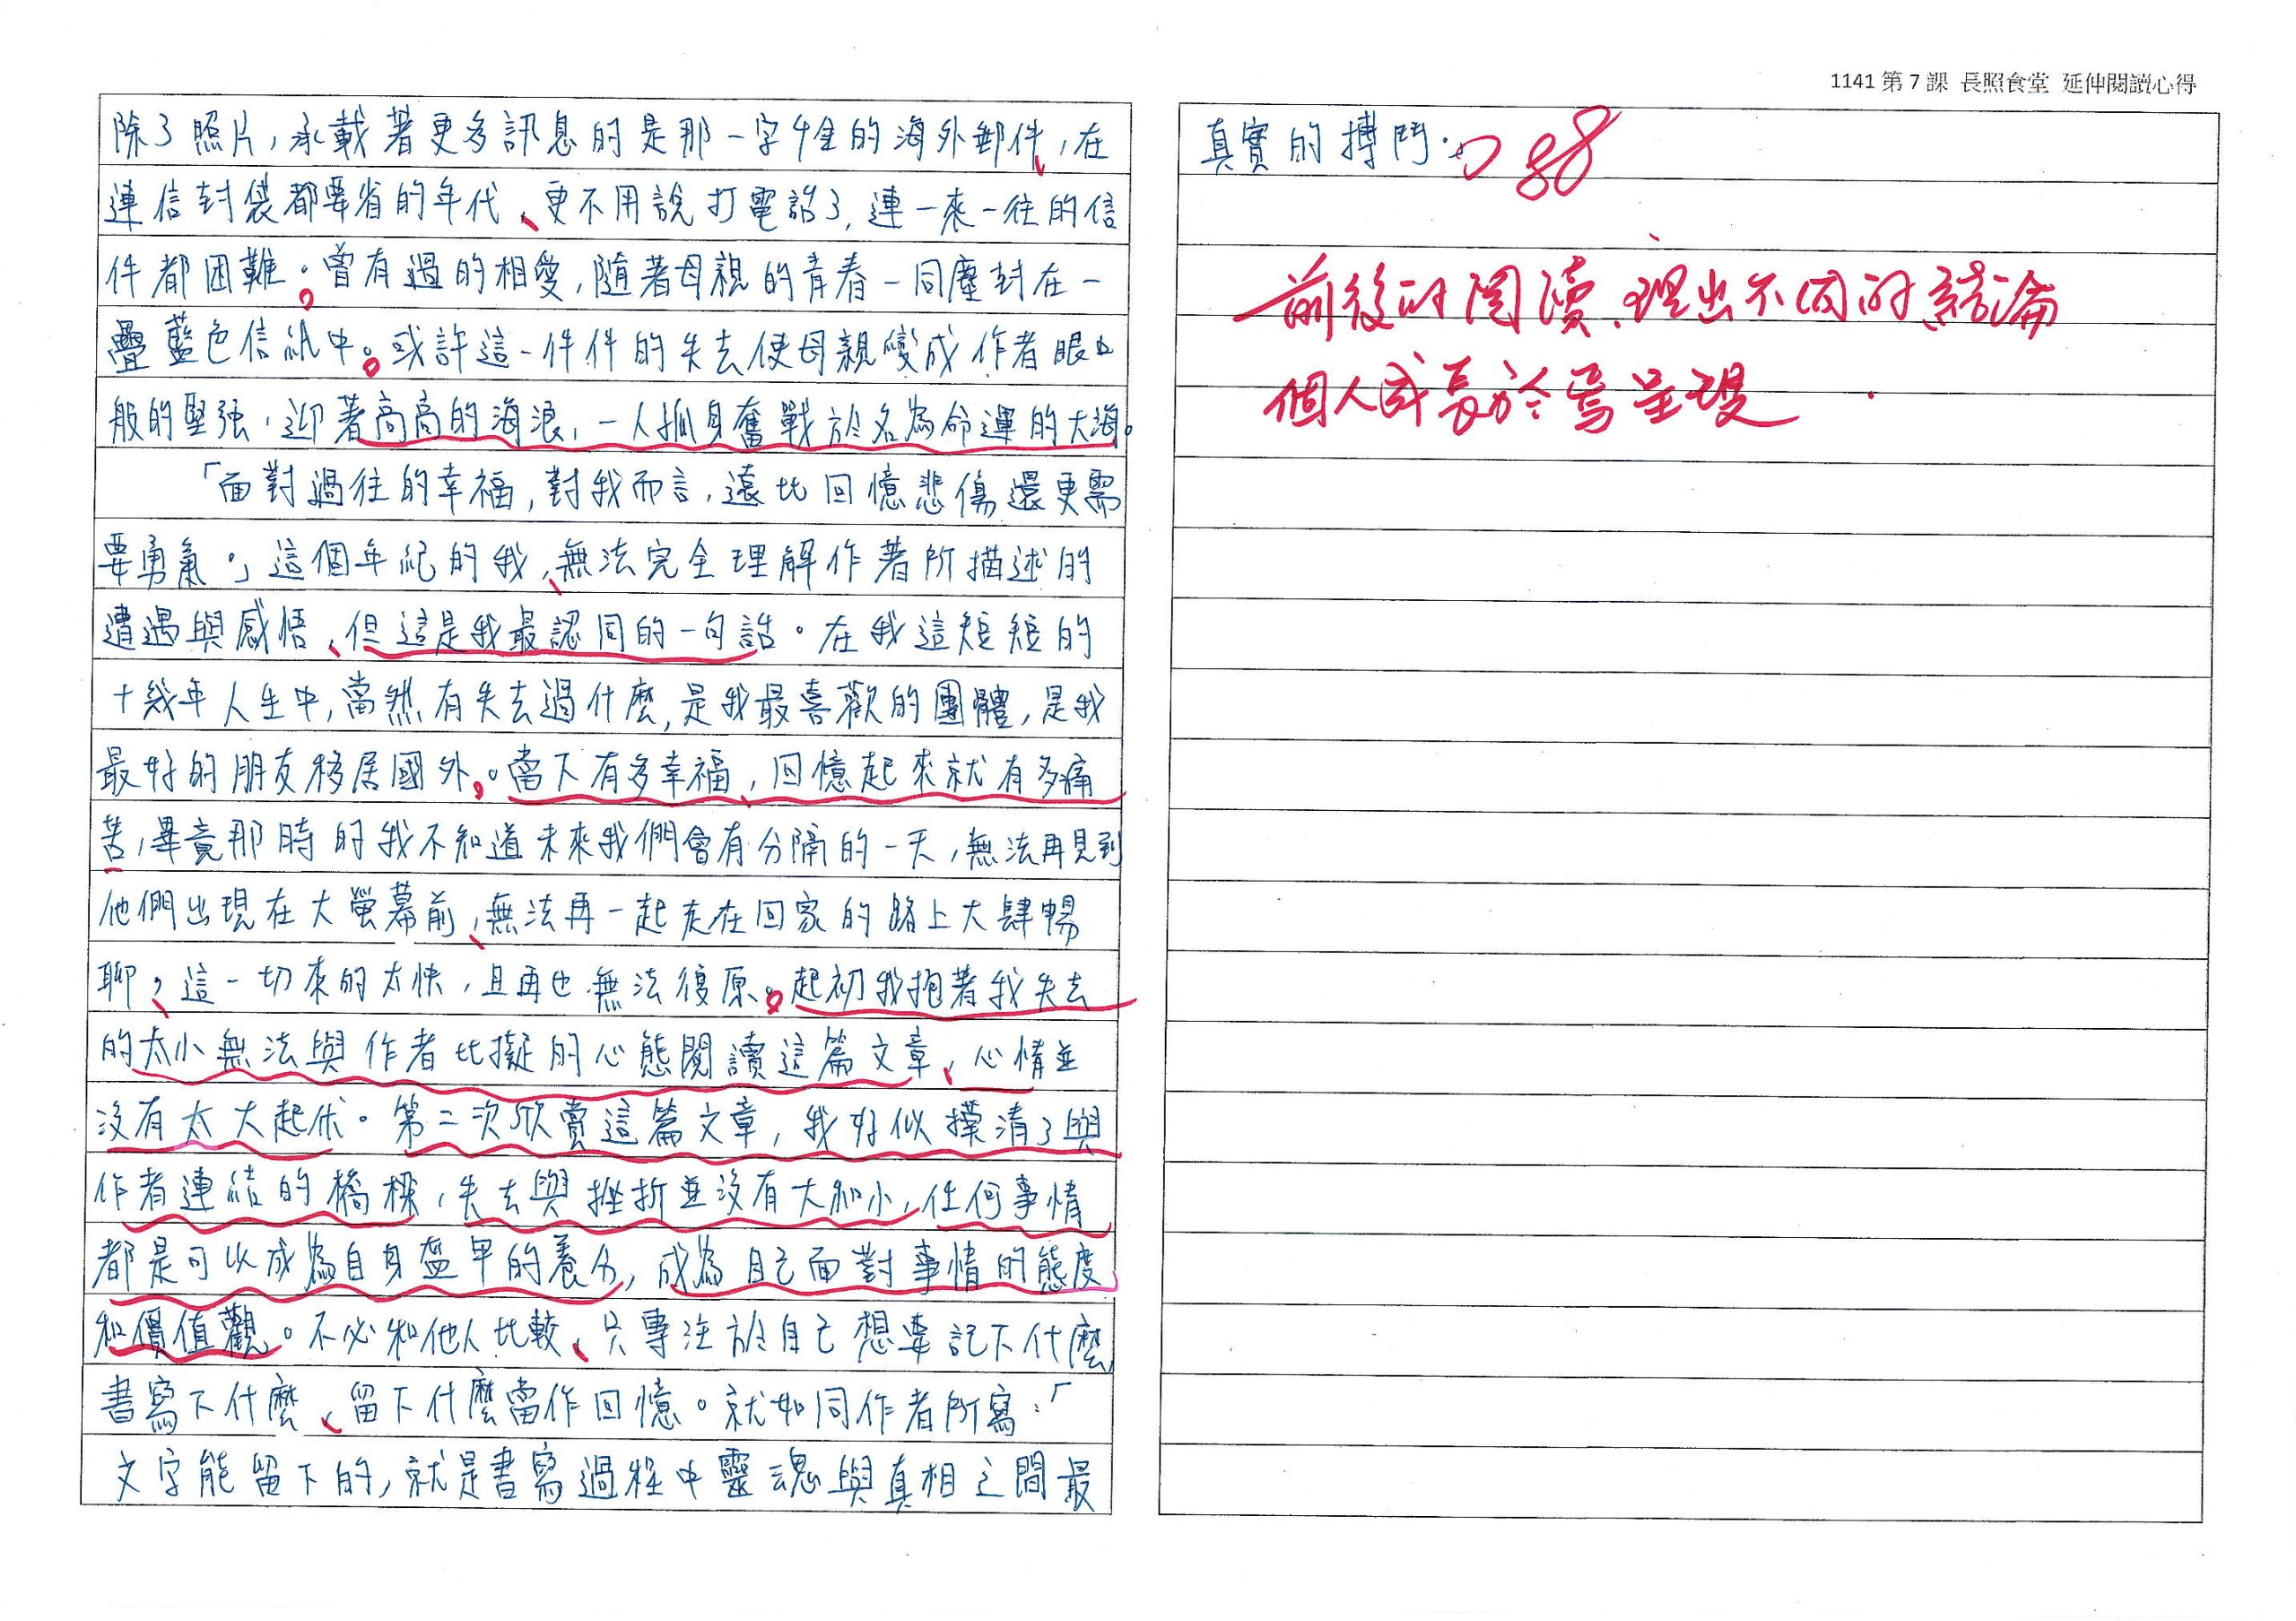 1141 第 7 課 長照食堂 延伸閱讀心得
除了照片，承載著更多訊息的是那一字千金的海外郵件，在
連信封袋都要省的年代、更不用說打電話了，連一來一往的信
件都困難。曾有過的相愛，隨著母親的青春一同塵封在一
疊藍色信紙中。或許這一件件的失去使母親變成作者眼中
般的堅強，迎著高高的海浪，一人孤身奮戰於名為命運的大海。
「面對過往的幸福，對我而言，遠比回憶悲傷還更需
要勇氣。」這個年紀的我、無法完全理解作者所描述的
遭遇與感悟、但這是我最認同的一句話。在我這短短的
十幾年人生中，當然有失去過什麼，是我最喜歡的團體，是我
最好的朋友移居國外。當下有多幸福，回憶起來就有多痛
苦，畢竟那時的我不知道未來我們會有分隔的一天，無法再見到
他們出現在大螢幕前、無法再一起走在回家的路上大肆暢
聊，這一切來的太快，且再也無法復原。起初我抱著我失去
的太小無法與作者比擬的心態閱讀這篇文章、心情並
沒有太大起伏。第二次欣賞這篇文章，我好似摸清了與
作者連結的橋樑，失去與挫折並沒有大和小，任何事情
都是可以成為自身盔甲的養分，成為自己面對事情的態度
和價值觀。不必和他人比較、只專注於自己想要記下什麼，
書寫下什麼、留下什麼當作回憶。就如同作者所寫：「
文字能留下的，就是書寫過程中靈魂與真相之間最
真實的搏鬥。」 88
前後的閱讀、理出不同的結論
個人成長於焉呈現